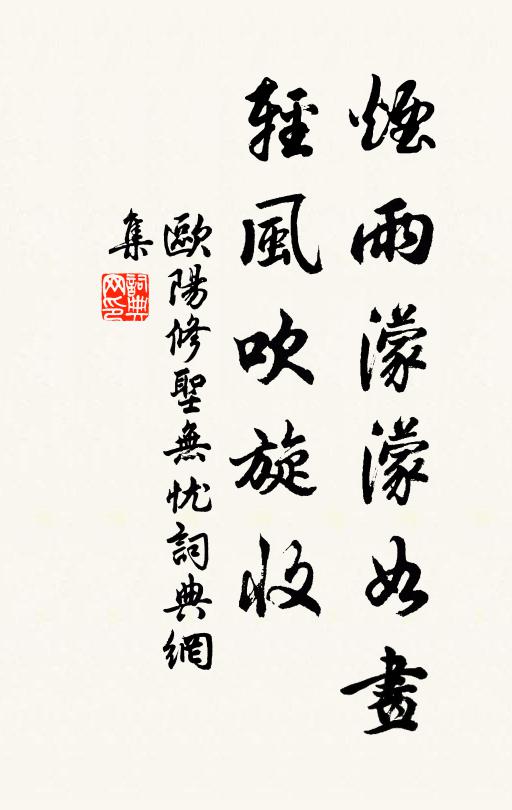 煙雨濛濛如畫
輕風吹旋收
歐陽修聖無忧詞典網
集
詞典
网印